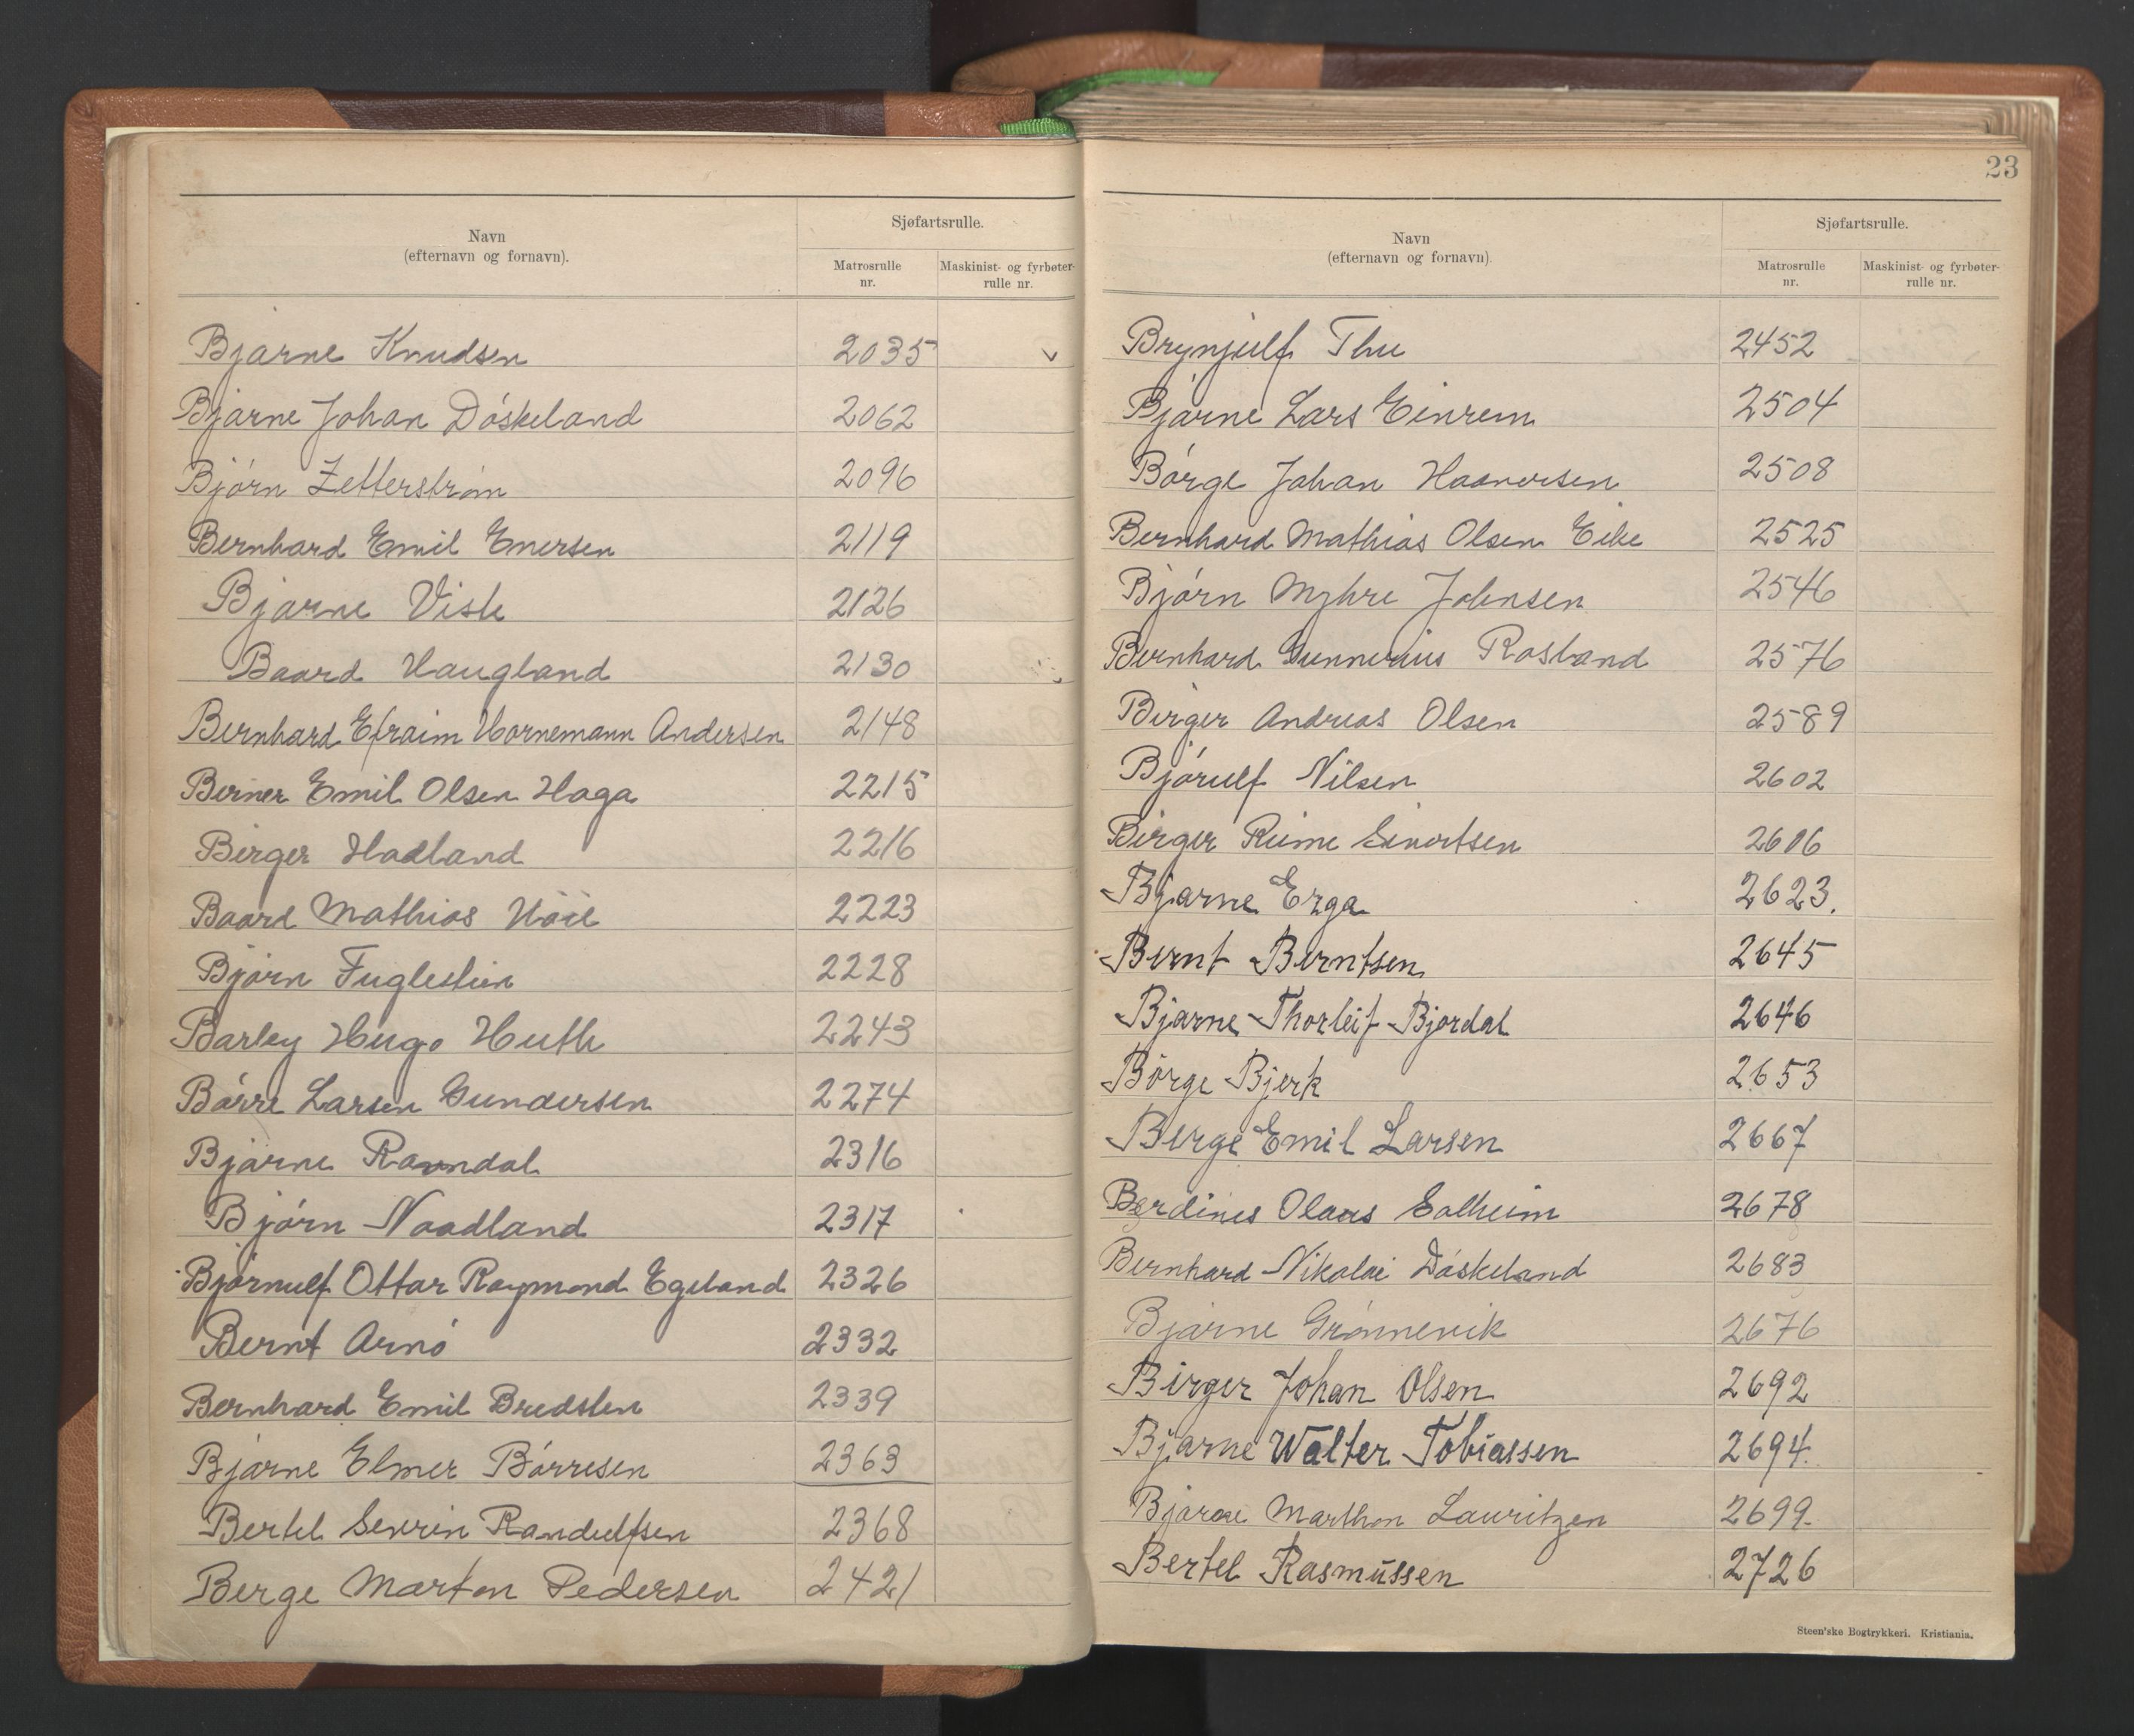 Navn
(efternavn og fornavn).
Sjøfartsrulle.
Matrosrulle
nr.
Maskinist- og fyrbøter-
rulle nr.
Bjarne Knudsen 2035
Bjarne Johan Døskeland 2062
Bjørn Zetterstrøm 2096
Bernhard Emil Enersen 2119
Bjarne Viste 2126
Baard Haugland 2130
Bernhard Efraim Hornemann Andersen 2148
Berner Emil Olsen Haga 2215
Birger Hadland 2216
Baard Mathias 2223
Bjørn Fuglestien 2228
Barley Hugo Huth 2243
Børre Larsen Gundersen 2274
Bjarne Ravndal 2316
Bjørn Naadland 2317
Bjørnulf Ottar Raymond Egeland 2326
Bernt Arnø 2332
Bernhard Emil Bredsten 2339
Bjarne Elmer Børresen 2363
Bertel Severin Randulfsen 2368
Berge Marton Pedersen 2421
23
Navn
(efternavn og fornavn).
Sjøfartsrulle.
Matrosrulle
nr.
Maskinist- og fyrbøter-
rulle nr.
Brynjulf Thu 2452
Bjarne Lars Einrem 2504
Børge Johan Haaversen 2508
Bernhard Mathias Olsen Eike 2525
Bjørn Myhre Johnsen 2546
Bernhard Gunnerius Rosland 2576
Birger Andreas Olsen 2589
Bjørulf Nilsen 2602
Birger Reime Sivertsen 2606
Bjarne Erga 2623.
Bernt Berntsen 2645
Bjarne Thorleif Bjordal 2646
Børge Bjerk 2653
Berge Emil Larsen 2667
Berdines Olaus Solheim 2678
Bernhard Nikolai Døskeland 2683
Bjarne Grønnevik 2676
Birger Johan Olsen 2692
Bjarne Walter Tobiassen 2694.
Bjarne Marthon Lauritzen 2699.
Bertel Rasmussen 2726
Steen'ske Bogtrykkeri. Kristiania.